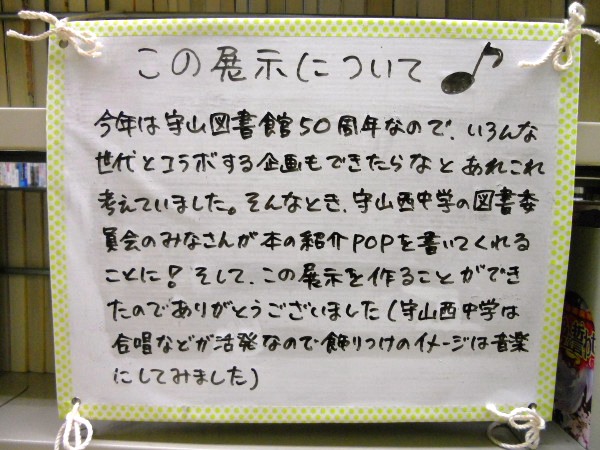 この展示について
今年は守山図書館50周年なので、いろんな
世代とコラボする企画もできたらなとあれこれ
考えていました。そんなとき、守山西中学の図書委
員会のみなさんが本の紹介POPを書いてくれる
ことに！そして、この展示を作ることができ
たのでありがとうございました(守山西中学は
合唱などが活発なので飾りつけのイメージは音楽
にしてみました)